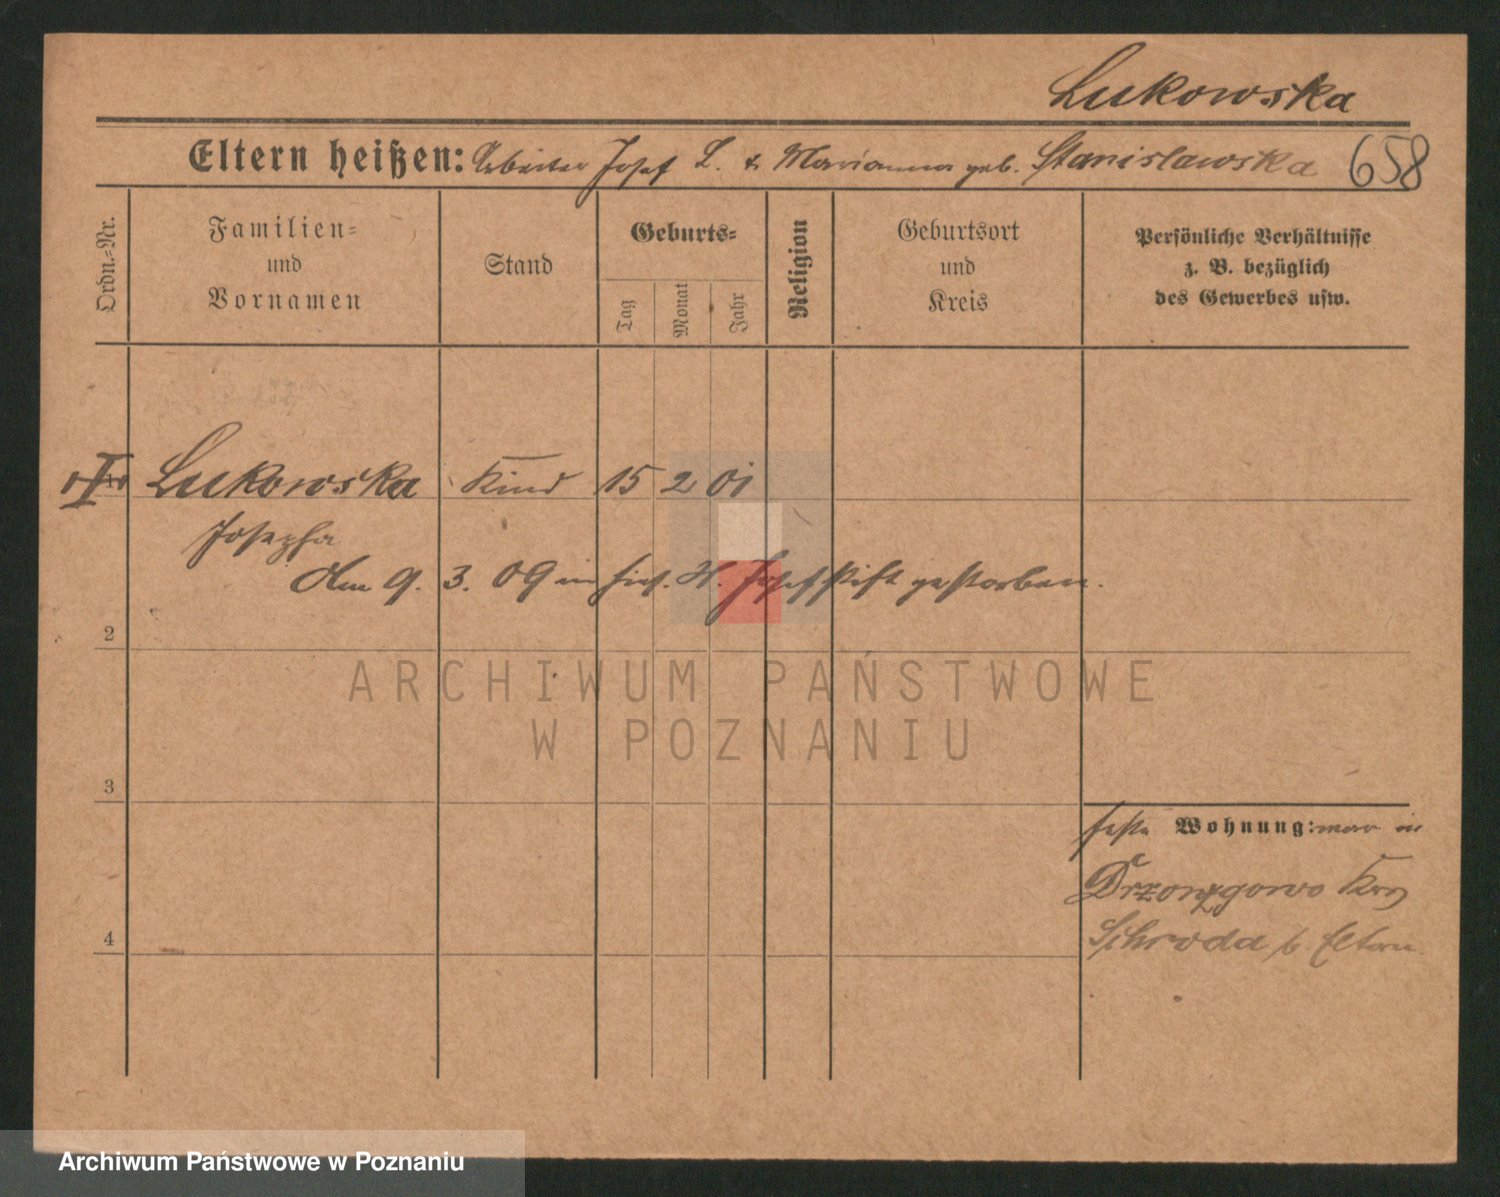 Lukowska
Eltern heißen: Arbeiter Josef L. & Marianna geb. Stanislawska 658
Ordn.-Nr.
Familien-
und
Vornamen
Stand
Geburts-
Tag
Monat
Jahr
Religion
Geburtsort
und
Kreis
Persönliche Verhältnisse
z. B. bezüglich
des Gewerbes usw.
Lukowska Kind 15 2 01
Josepha
Am 9. 3. 09 im hies. St. Josefstift gestorben.
2
ARCHIWUM PAŃSTWOWE
W POZNANIU
3
feste Wohnung: war in
Drzonzgowo Krs
Schroda b. Eltern
4
Archiwum Państwowe w Poznaniu